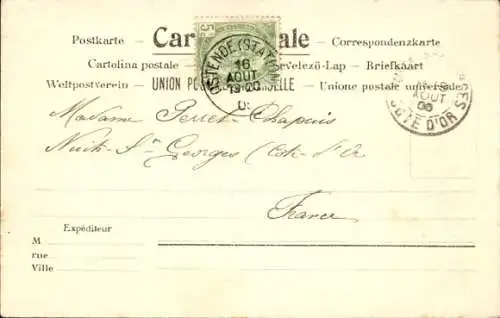 Postkarte — Carte postale — Correspondenzkarte
Cartolina postale — Levelezö-Lap — Briefkaart
Weltpostverein — UNION POSTALE UNIVERSELLE — Unione postale universale
5c
OSTENDE (STATION)
16
AOUT
1906
AOUT
06
CÔTE D'OR
Madame Perret-Chapuis
Nuits-St Georges (Côte-d'Or
France
Expéditeur
M
rue
Ville